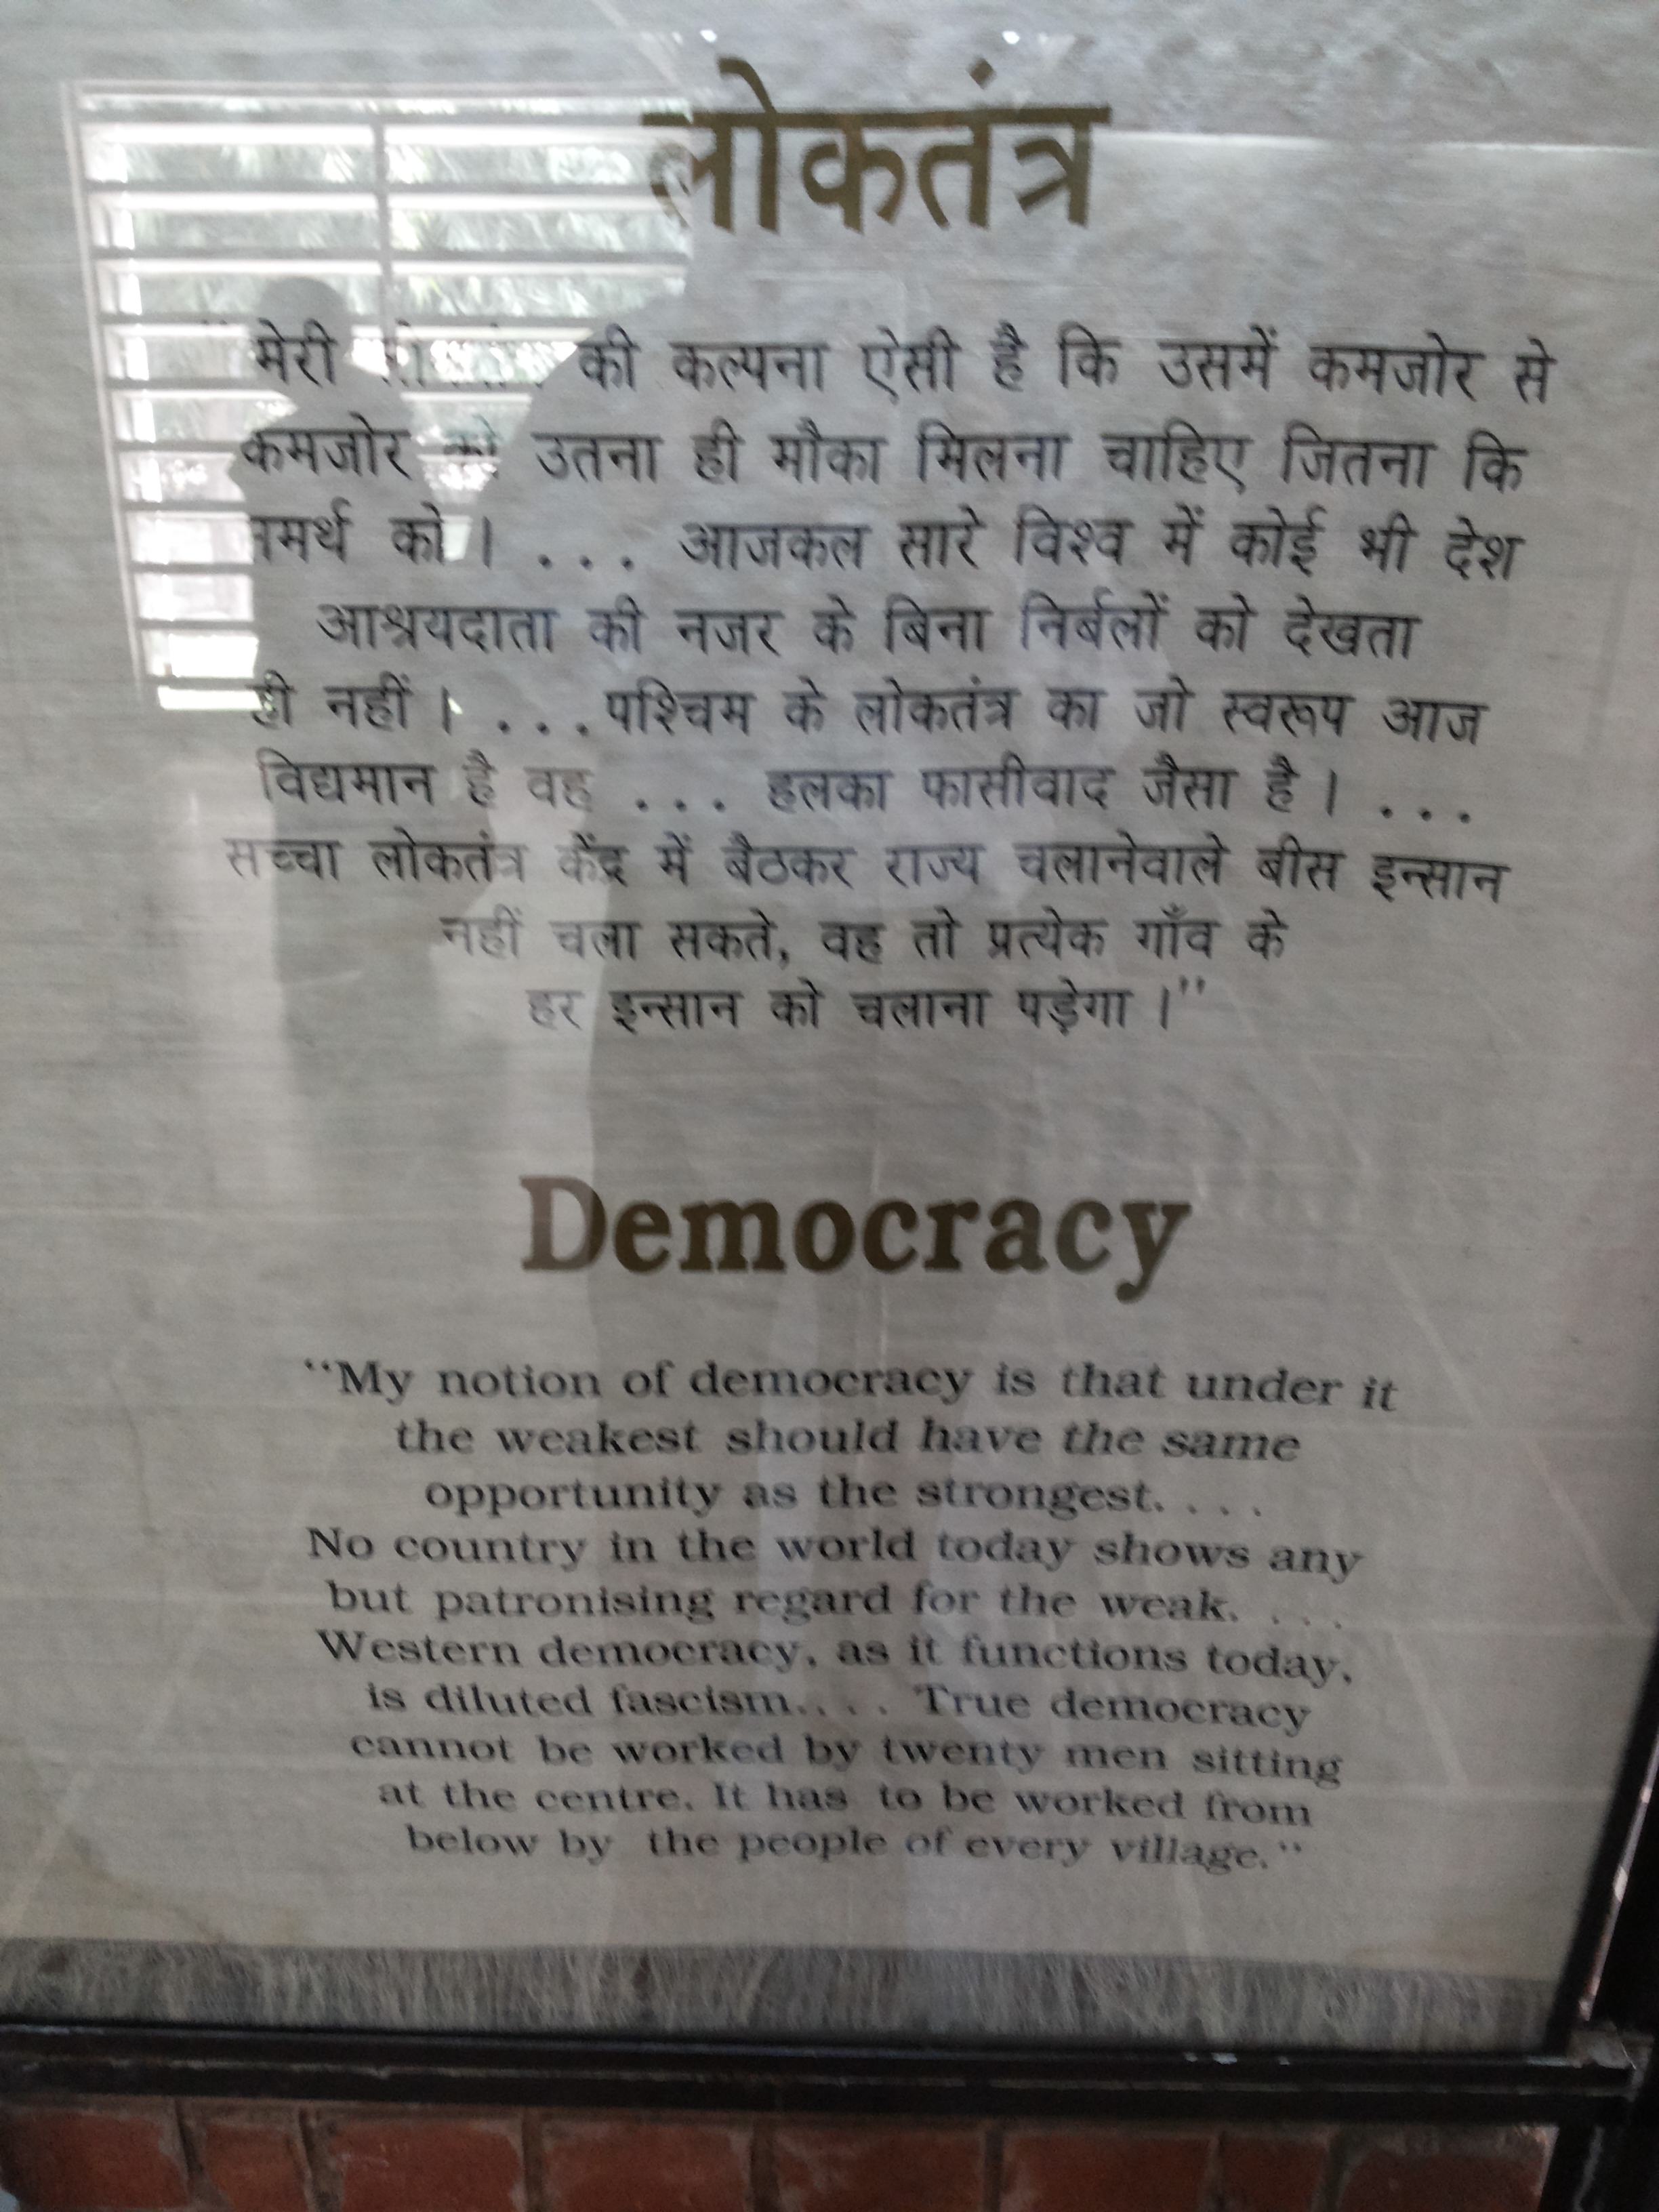 लोकतंत्र
"मेरी की कल्पना ऐसी है कि उसमें कमजोर से
कमजोर को उतना ही मौका मिलना चाहिए जितना कि
समर्थ को । . . . आजकल सारे विश्व में कोई भी देश
आश्रयदाता की नजर के बिना निर्बलों को देखता
ही नहीं । . . . पश्चिम के लोकतंत्र का जो स्वरूप आज
विद्यमान है वह . . . हलका फासीवाद जैसा है । . . .
सच्चा लोकतंत्र केंद्र में बैठकर राज्य चलानेवाले बीस इन्सान
नहीं चला सकते, वह तो प्रत्येक गाँव के
हर इन्सान को चलाना पड़ेगा ।"
Democracy
"My notion of democracy is that under it
the weakest should have the same
opportunity as the strongest. . . .
No country in the world today shows any
but patronising regard for the weak. . . .
Western democracy, as it functions today,
is diluted fascism. . . . True democracy
cannot be worked by twenty men sitting
at the centre. It has to be worked from
below by the people of every village."